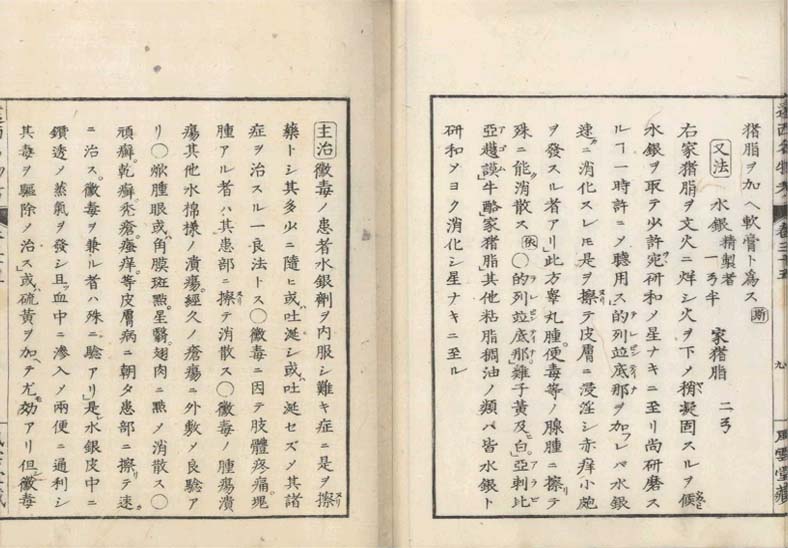 猪脂ヲ加ヘ軟膏ト爲ス
又法 水銀精製者一弓半 家猪脂二弓
右家猪脂ヲ文火ニ烊シ火ヲ下メ稍凝固スルヲ候
水銀ヲ取テ少許宛研和メ星ナキニ至リ尚研磨ス
ルヿ一時許ニメ聽用ス的列並底那ヲ加フレバ水銀
速ニ消化スレ𪜈是ヲ擦テ皮膚ニ浸淫シ赤痒小皰
ヲ發スル者アリ此方睾丸腫便毒等ノ腺腫ニ擦テ
殊ニ能消散ス〇的列並底那雞子黄及白亞刺比
亞護謨牛酪家猪脂其他粘脂稠油ノ類パ皆水銀ト
研和メヨク消化シ星ナキニ至ル
九
風雲堂藏
主治 黴毒ノ患者水銀劑ヲ内服シ難キ症ニ是ヲ擦
藥トシ其多少ニ隨ヒ或吐涎シ或吐涎セズメ其諸
症ヲ治スル一良法トス〇黴毒ニ因テ肢體疼痛塊
腫アル者ハ其患部ニ擦テ消散ス〇黴毒ノ腫瘍潰
瘍其他水棉様ノ潰瘍經久ノ瘡瘍ニ外敷メ良驗ア
リ〇焮腫眼或角膜斑㸃星翳翅肉ニ㸃メ消散ス〇
頑癬乾癬禿瘡瘙痒等皮膚病ニ朝タ患部ニ擦テ速
ニ治ス黴毒ヲ兼ル者ハ殊ニ驗アリ是水銀皮中ニ
鑽透ノ蒸氣ヲ發シ且血中ニ滲入メ兩便ニ通利シ
其毒ヲ驅除ノ治ス或硫黄ヲ加テ尤効アリ但黴毒